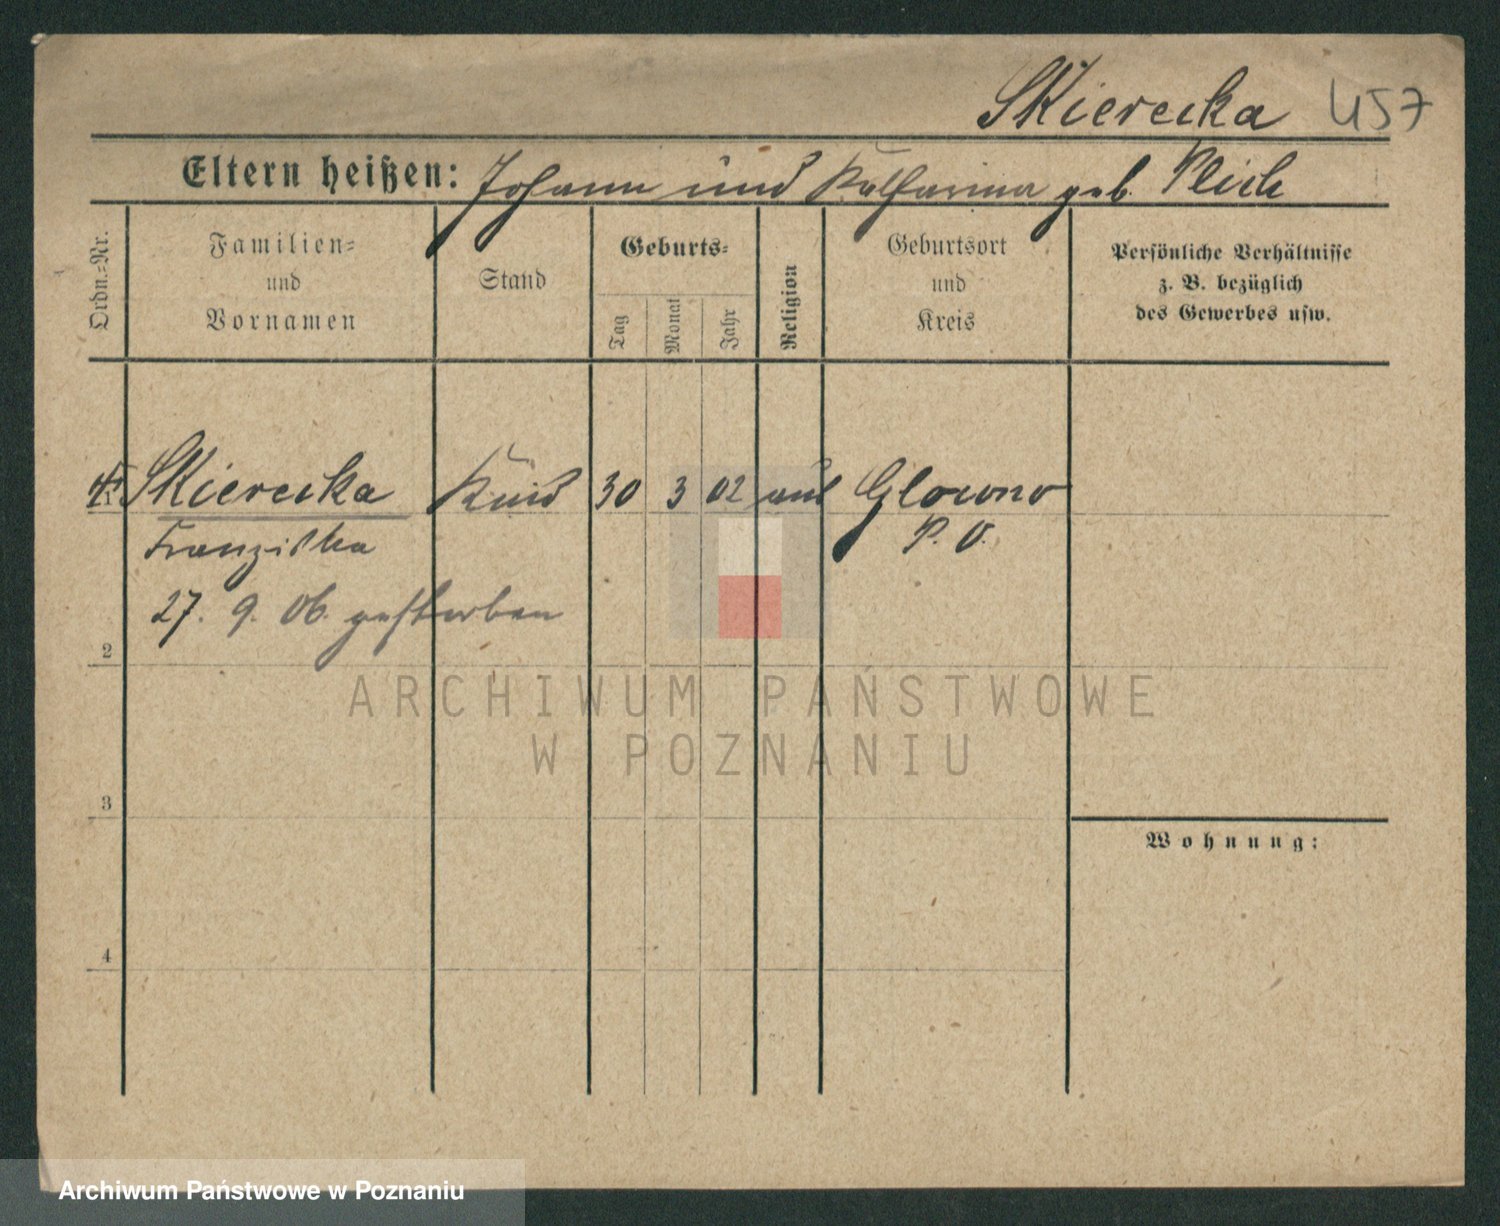 Skierecka 457
Eltern heißen: Johann und Katharina geb.
Ordn.-Nr.
Familien-
und
Vornamen
Stand
Geburts-
Tag
Monat
Jahr
Religion
Geburtsort
und
Kreis
Persönliche Verhältnisse
z. B. bezüglich
des Gewerbes usw.
Skierecka Kind 30 3 02 Glowno
Franziska P. O.
27. 9. 06. gestorben
2
3
4
Wohnung:
ARCHIWUM PAŃSTWOWE
W POZNANIU
Archiwum Państwowe w Poznaniu